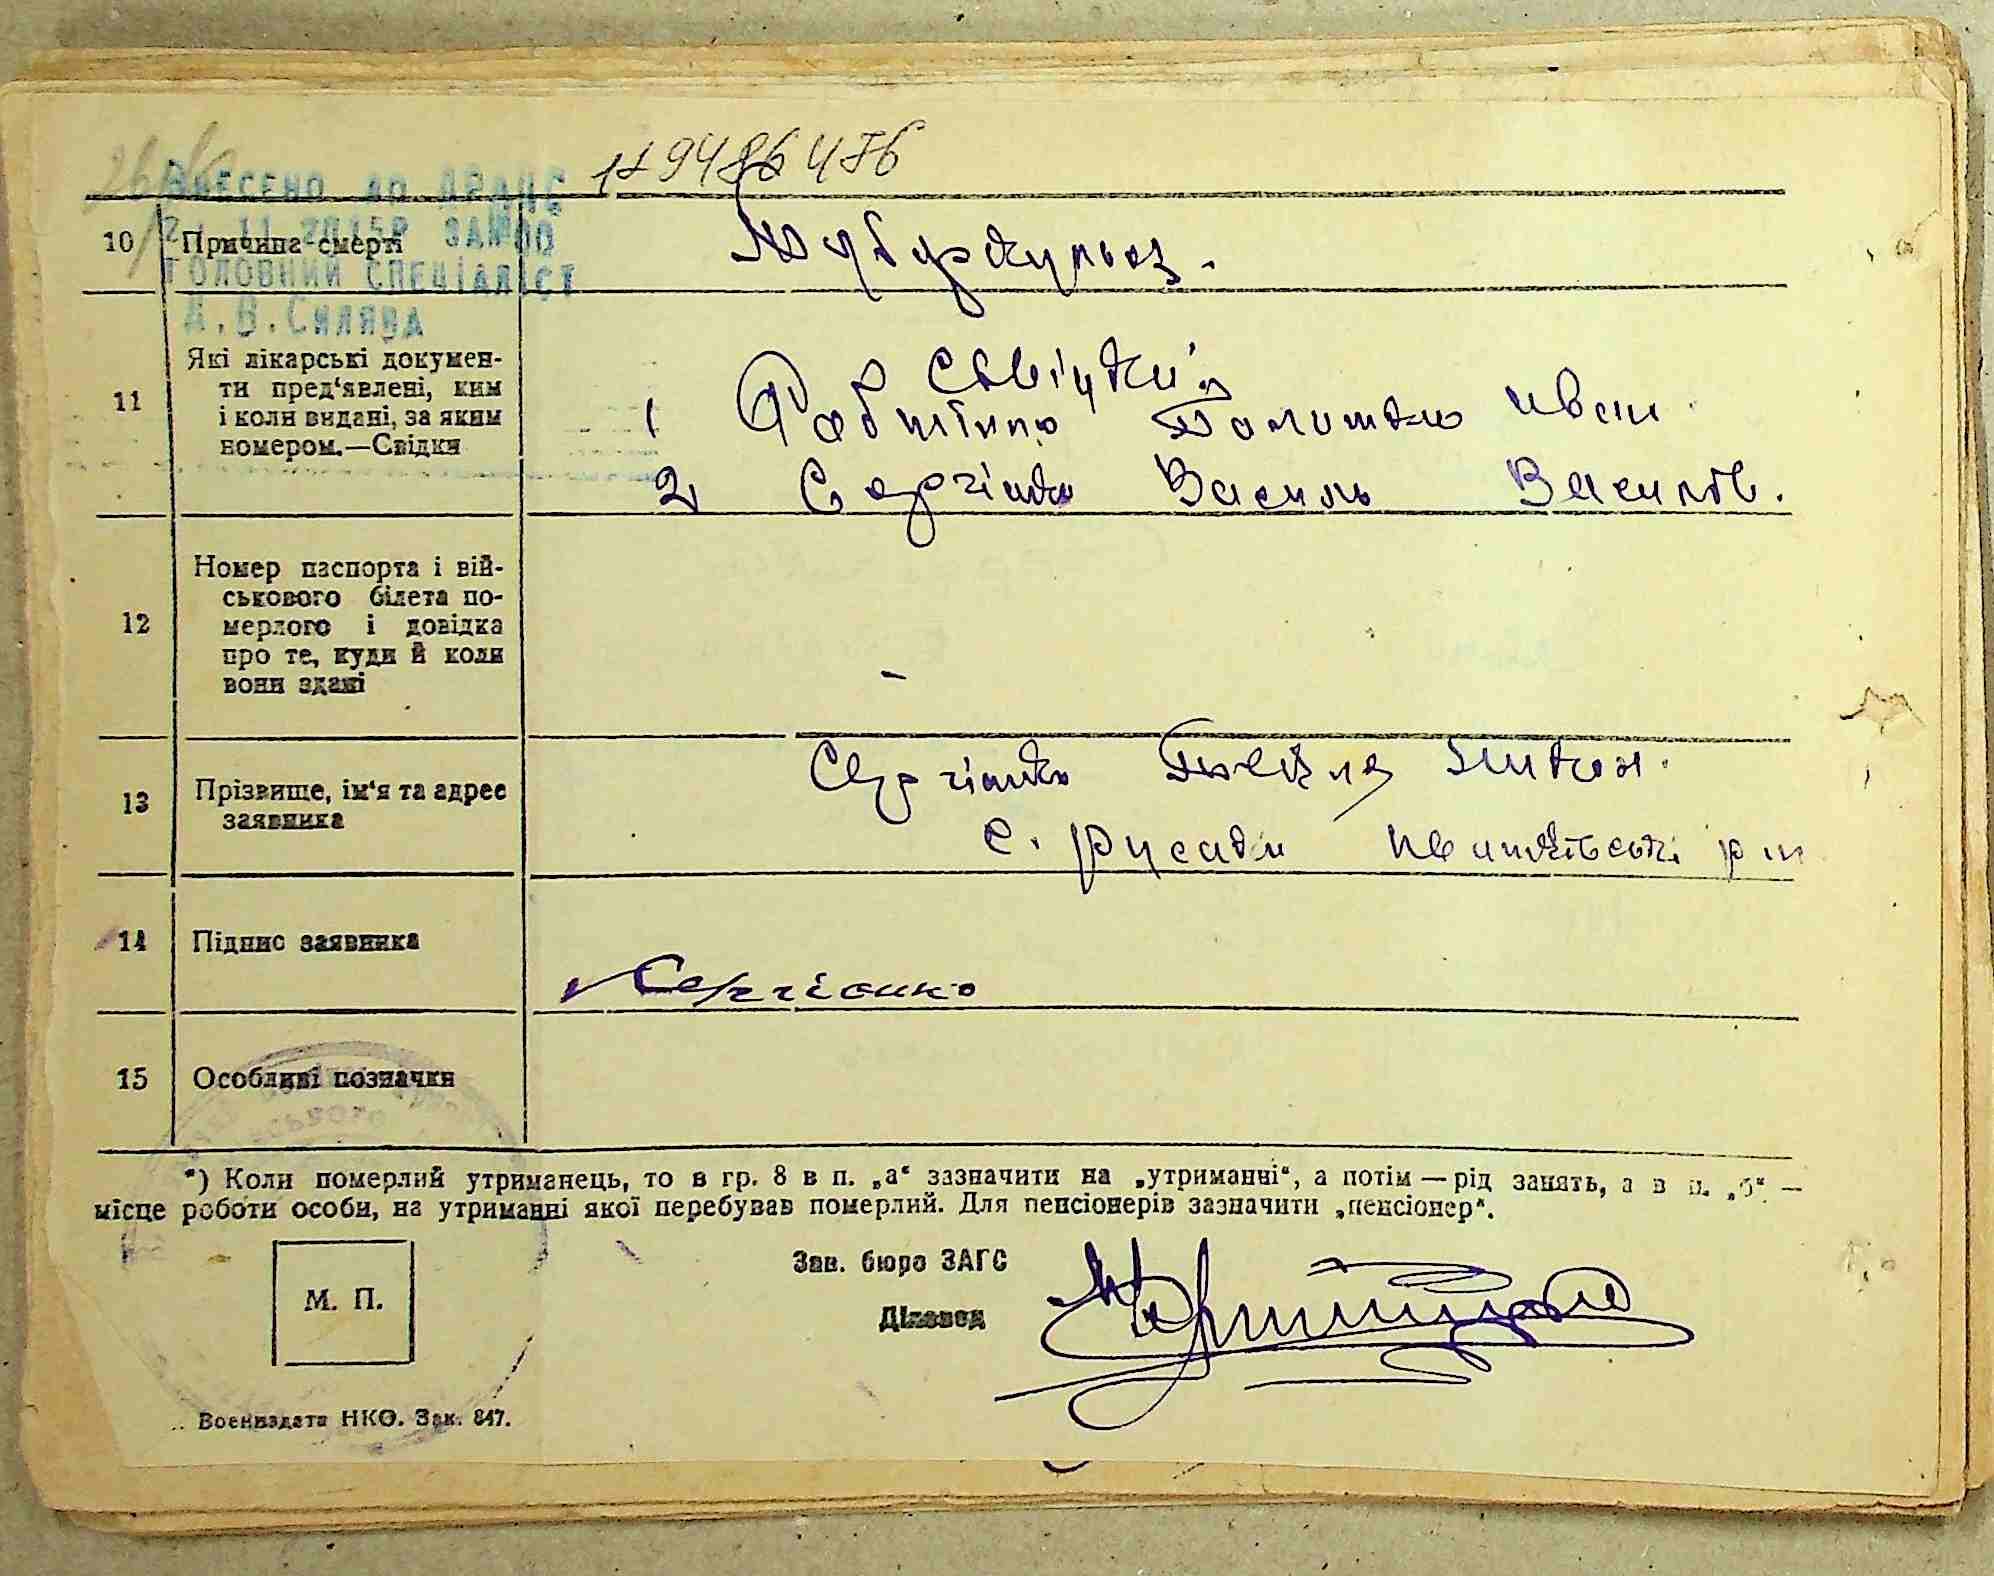 ВНЕСЕНО ДО ДРАЦС
ГОЛОВНИЙ СПЕЦІАЛІСТ
А.В.Силява
10 Причина смерті Туберкульоз.
11 Які лікарські докумен-
ти пред'явлені, ким
і коли видані, за яким
номером.—Свідки
Свідки
1 Іван
2 Сергіенко Василь Васильов.
12 Номер паспорта і вій-
ськового білета по-
мерлого і довідка
про те, куди й коли
вони здані
-
13 Прізвище, ім'я та адрес
заявника
Сергіенко
с.
14 Підпис заявника Сергіенко
15 Особливі позначки
*) Коли померлий утриманець, то в гр. 8 в п. „а“ зазначити на „утриманні“, а потім — рід занять, а в п. „б“ —
місце роботи особи, на утриманні якої перебував померлий. Для пенсіонерів зазначити „пенсіонер“.
Зав. бюро ЗАГС
Діловод
М. П.
Воениздата НКО. Зак. 847.